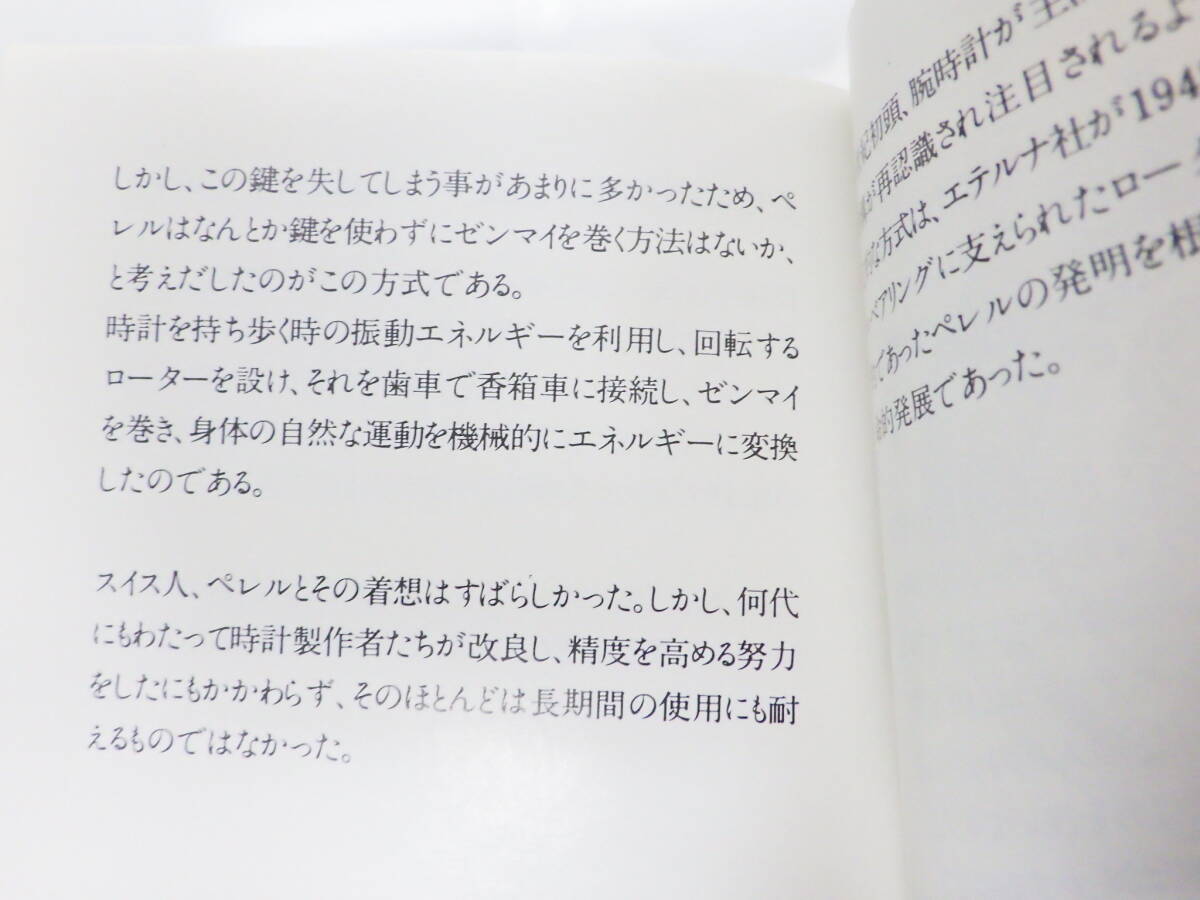 しかし、この鍵を失してしまう事があまりに多かったため、ペ
レルはなんとか鍵を使わずにゼンマイを巻く方法はないか、
と考えだしたのがこの方式である。
時計を持ち歩く時の振動エネルギーを利用し、回転する
ローターを設け、それを歯車で香箱車に接続し、ゼンマイ
を巻き、身体の自然な運動を機械的にエネルギーに変換
したのである。
スイス人、ペレルとその着想はすばらしかった。しかし、何代
にもわたって時計製作者たちが改良し、精度を高める努力
をしたにもかかわらず、そのほとんどは長期間の使用にも耐
えるものではなかった。
紀初頭、腕時計が
が再認識され注目されるよ
な方式は、エテルナ社が194
ベアリングに支えられたロー
であったペレルの発明を
的発展であった。